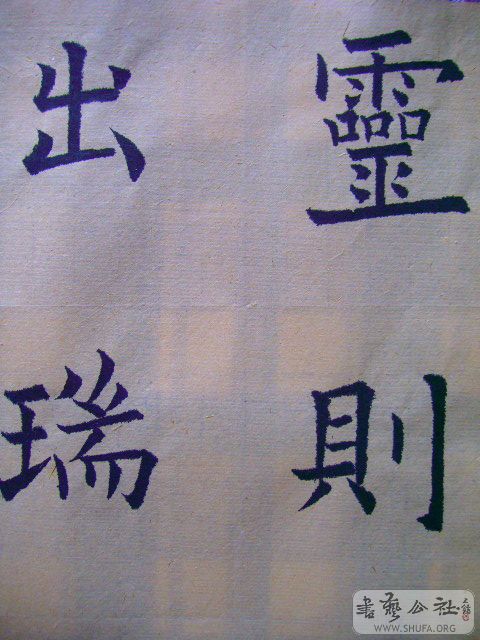 靈則
出瑞
書藝公社
WWW.SHUFA.ORG